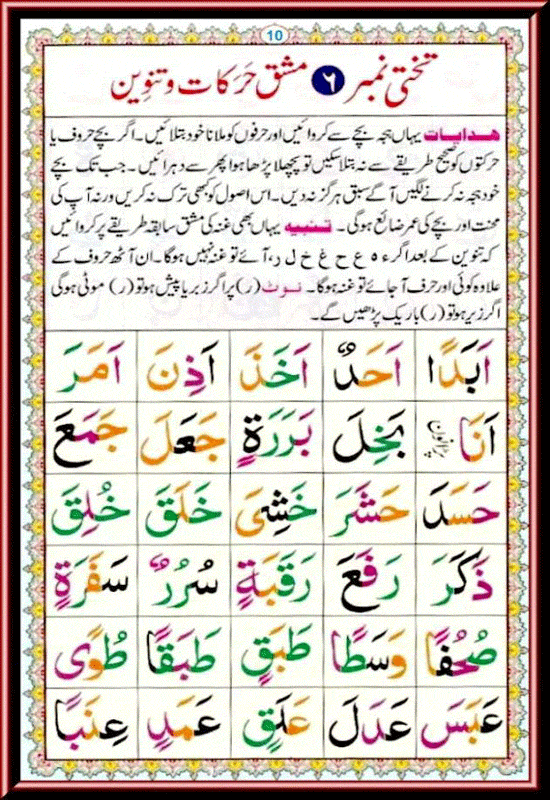 10
تختی نمبر ۶ مشق حرکات و تنوین
ھدایات یہاں ہجہ بچے سے کروائیں اور حرفوں کو ملانا خود بتلائیں۔ اگر بچے حروف یا
حرکتوں کو صحیح طریقے سے نہ بتلا سکیں تو پچھلا پڑھا ہوا پھر سے دہرائیں۔ جب تک بچے
خود ہجہ نہ کرنے لگیں آگے سبق ہرگز نہ دیں۔ اس اصول کو کبھی ترک نہ کریں ورنہ آپ کی
محنت اور بچے کی عمر ضائع ہوگی۔ تنبیہ یہاں بھی غنہ کی مشق سابقہ طریقے پر کروائیں
کہ تنوین کے بعد اگر ء ہ ع ح غ خ ل ر، آئے تو غنہ نہیں ہوگا۔ ان آٹھ حروف کے
علاوہ کوئی اور حرف آ جائے تو غنہ ہوگا۔ نوٹ (ر) پر اگر زبر یا پیش ہو تو (ر) موٹی ہوگی
اگر زیر ہو تو (ر) باریک پڑھیں گے۔
اَبَدًا اَحَدٌ اَخَذَ اَذِنَ اَمَرَ
اَنَا بَخِلَ بَرَرَةٍ جَعَلَ جَمَعَ
حَسَدَ حَشَرَ خَشِیَ خَلَقَ خُلِقَ
ذَکَرَ رَفَعَ رَقَبَةٍ سُرُرٌ سَفَرَةٍ
صُحُفًا وَسَطًا طَبَقٍ طَبَقًا طُوًی
عَبَسَ عَدَلَ عَلَقٍ عَمَدٍ عِنَبًا